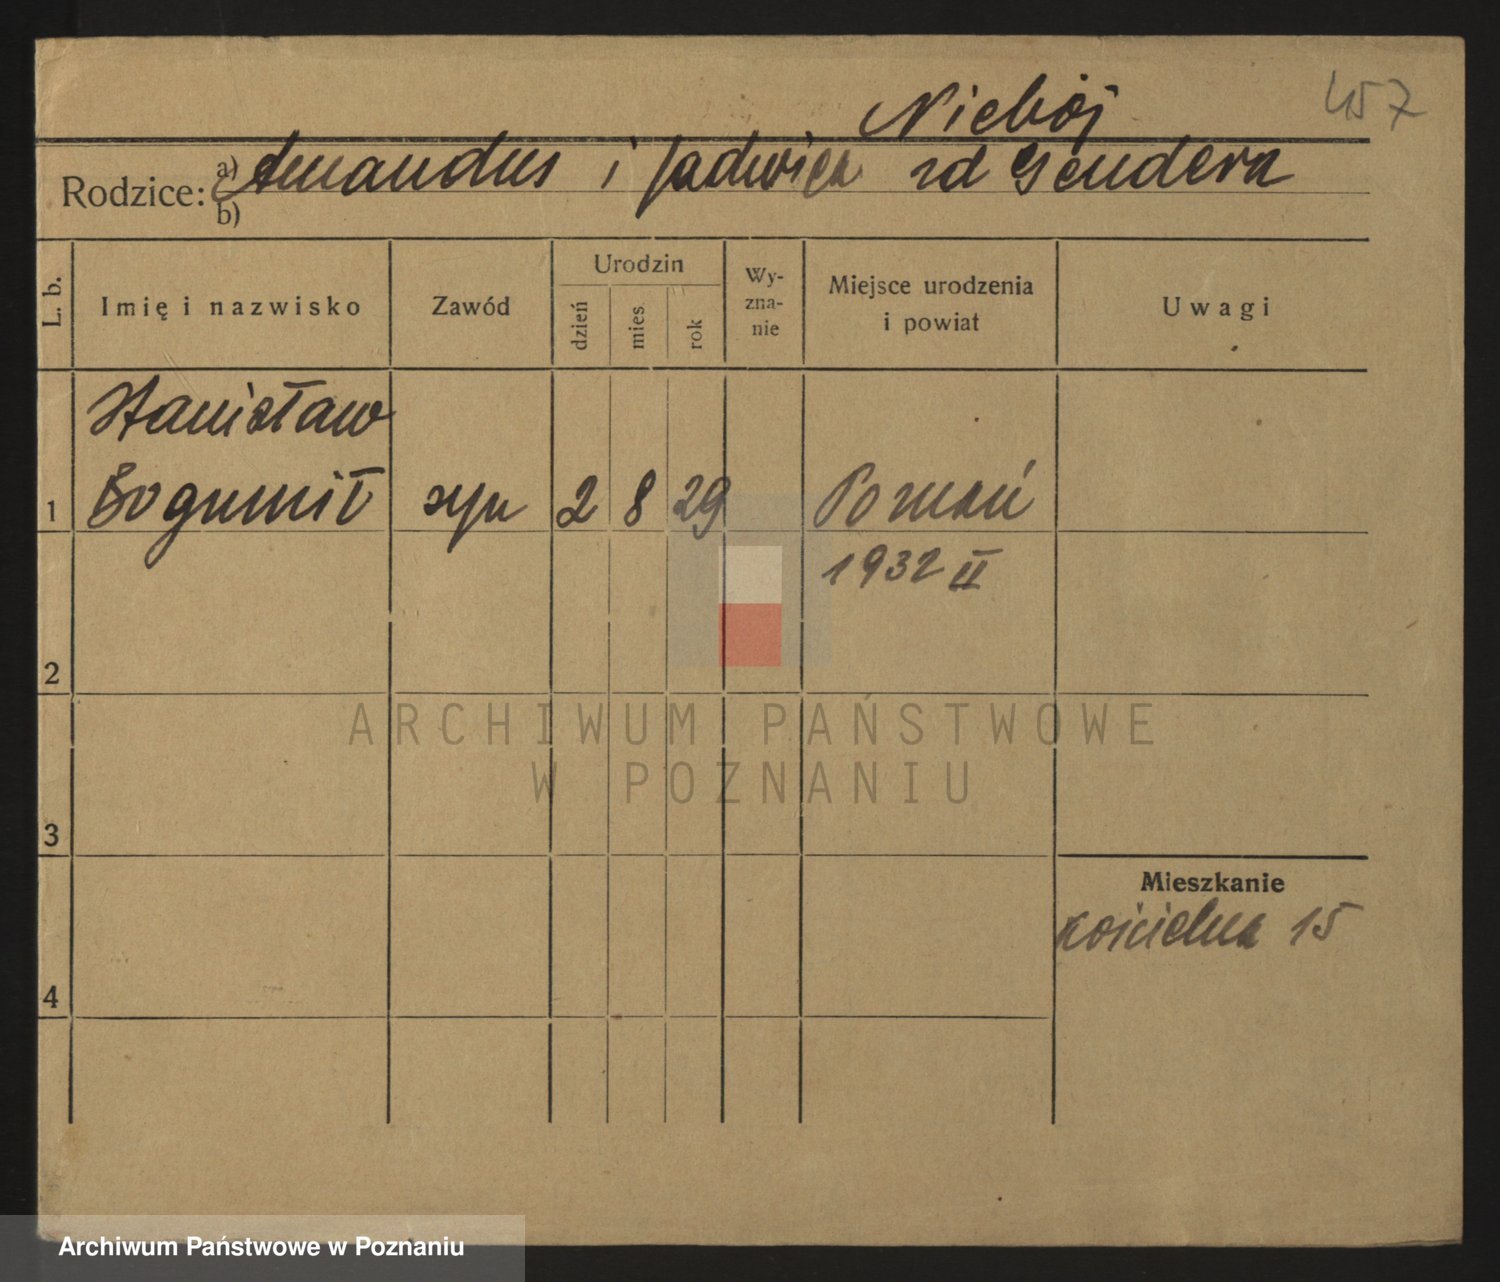 457
Niebój
Rodzice: a) Amandus i Jadwiga zd Gendera
b)
L. b.
Imię i nazwisko
Zawód
Urodzin
dzień
mies.
rok
Wy-
zna-
nie
Miejsce urodzenia
i powiat
Uwagi
Stanisław
1 Bogumił syn 2 8 29 Poznań
1932 II
2
3
4
Mieszkanie
Kościelna 15
ARCHIWUM PAŃSTWOWE
W POZNANIU
Archiwum Państwowe w Poznaniu